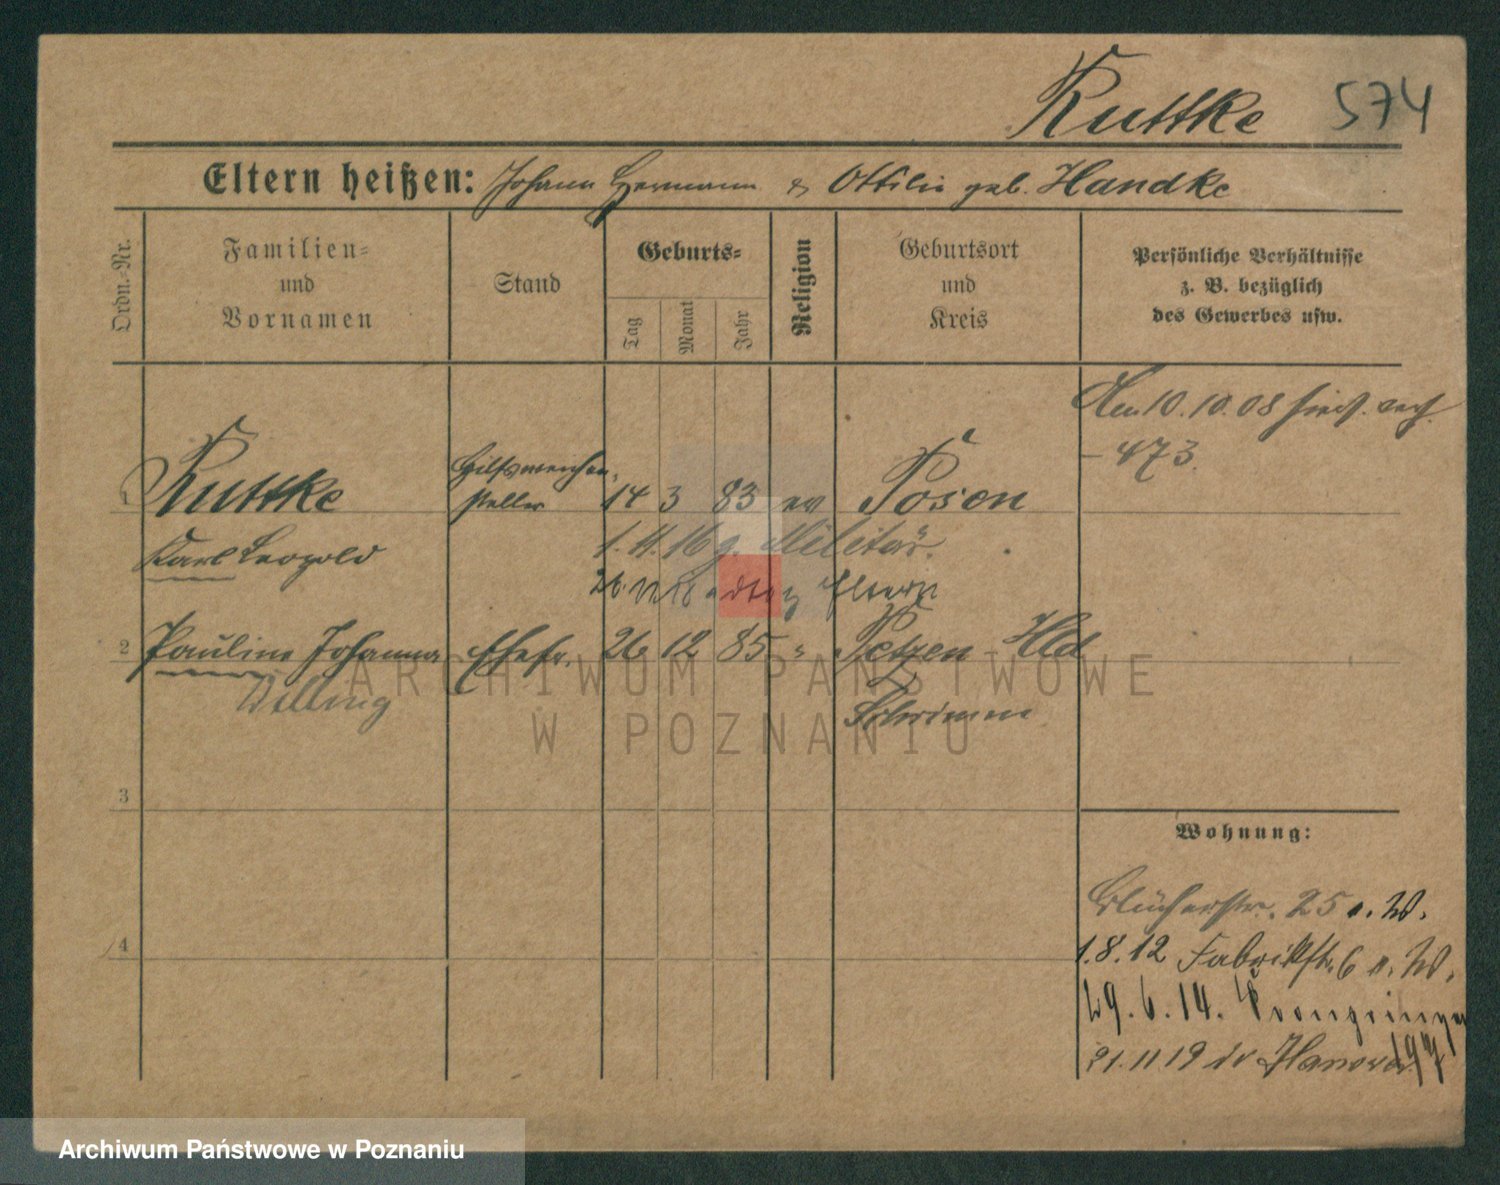 Ruttke 574
Eltern heißen: Johann Hermann & Ottilie geb. Handke
Ordn.-Nr.
Familien-
und
Vornamen
Stand
Geburts-
Tag
Monat
Jahr
Religion
Geburtsort
und
Kreis
Persönliche Verhältnisse
z. B. bezüglich
des Gewerbes usw.
Am 10.10.08
- 473.
1 Ruttke Hilfsweichen-
steller 14 3 83 ev Posen
Karl Leopold 1.11.16 z. Militär.
Eltern
2 Pauline Johanna Ehefr. 26 12 85 " Petzen Hld
Welling Schrimm
3
4
Wohnung:
Blücherstr. 25 n. W.
1.8.12 Fabrikstr. 6 n. W.
29.6.14. Kronprinzen
97
21.11.19 in Hanover
ARCHIWUM PAŃSTWOWE
W POZNANIU
Archiwum Państwowe w Poznaniu